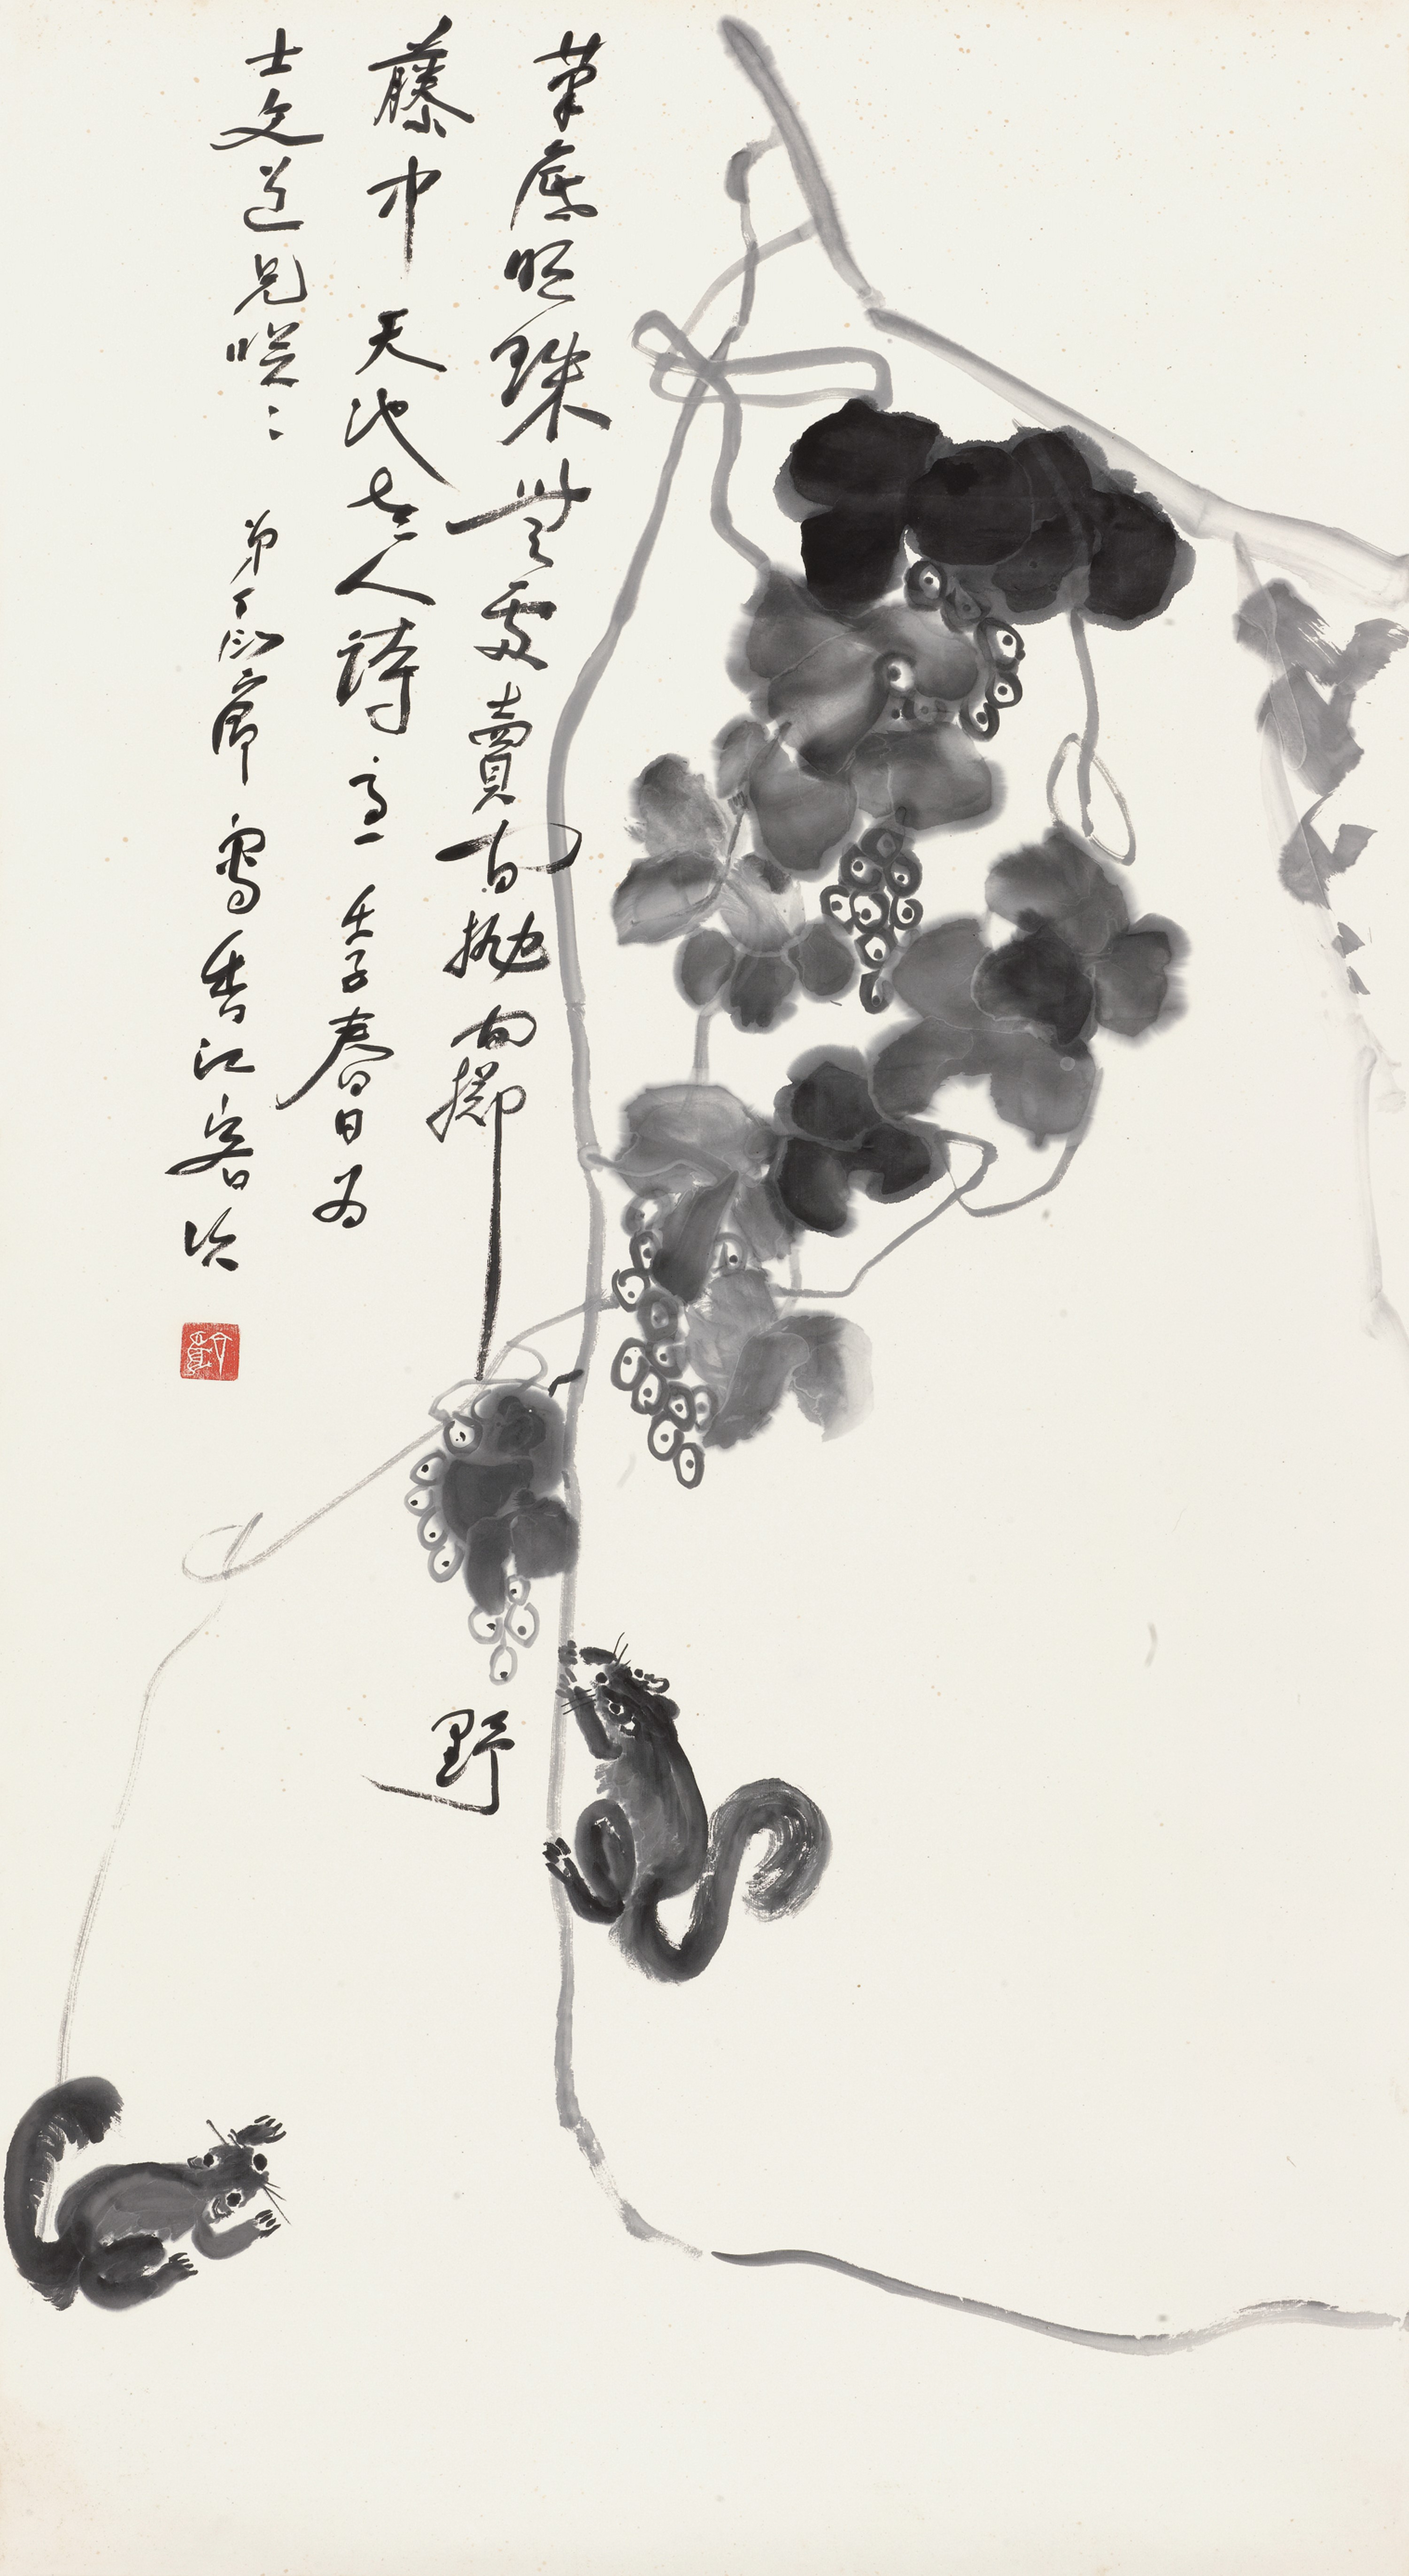 筆底明珠無處賣閒拋閒擲野
藤中天池老人詩意壬子春日為
士文道兄咲〻弟丁衍庸寫香江客次